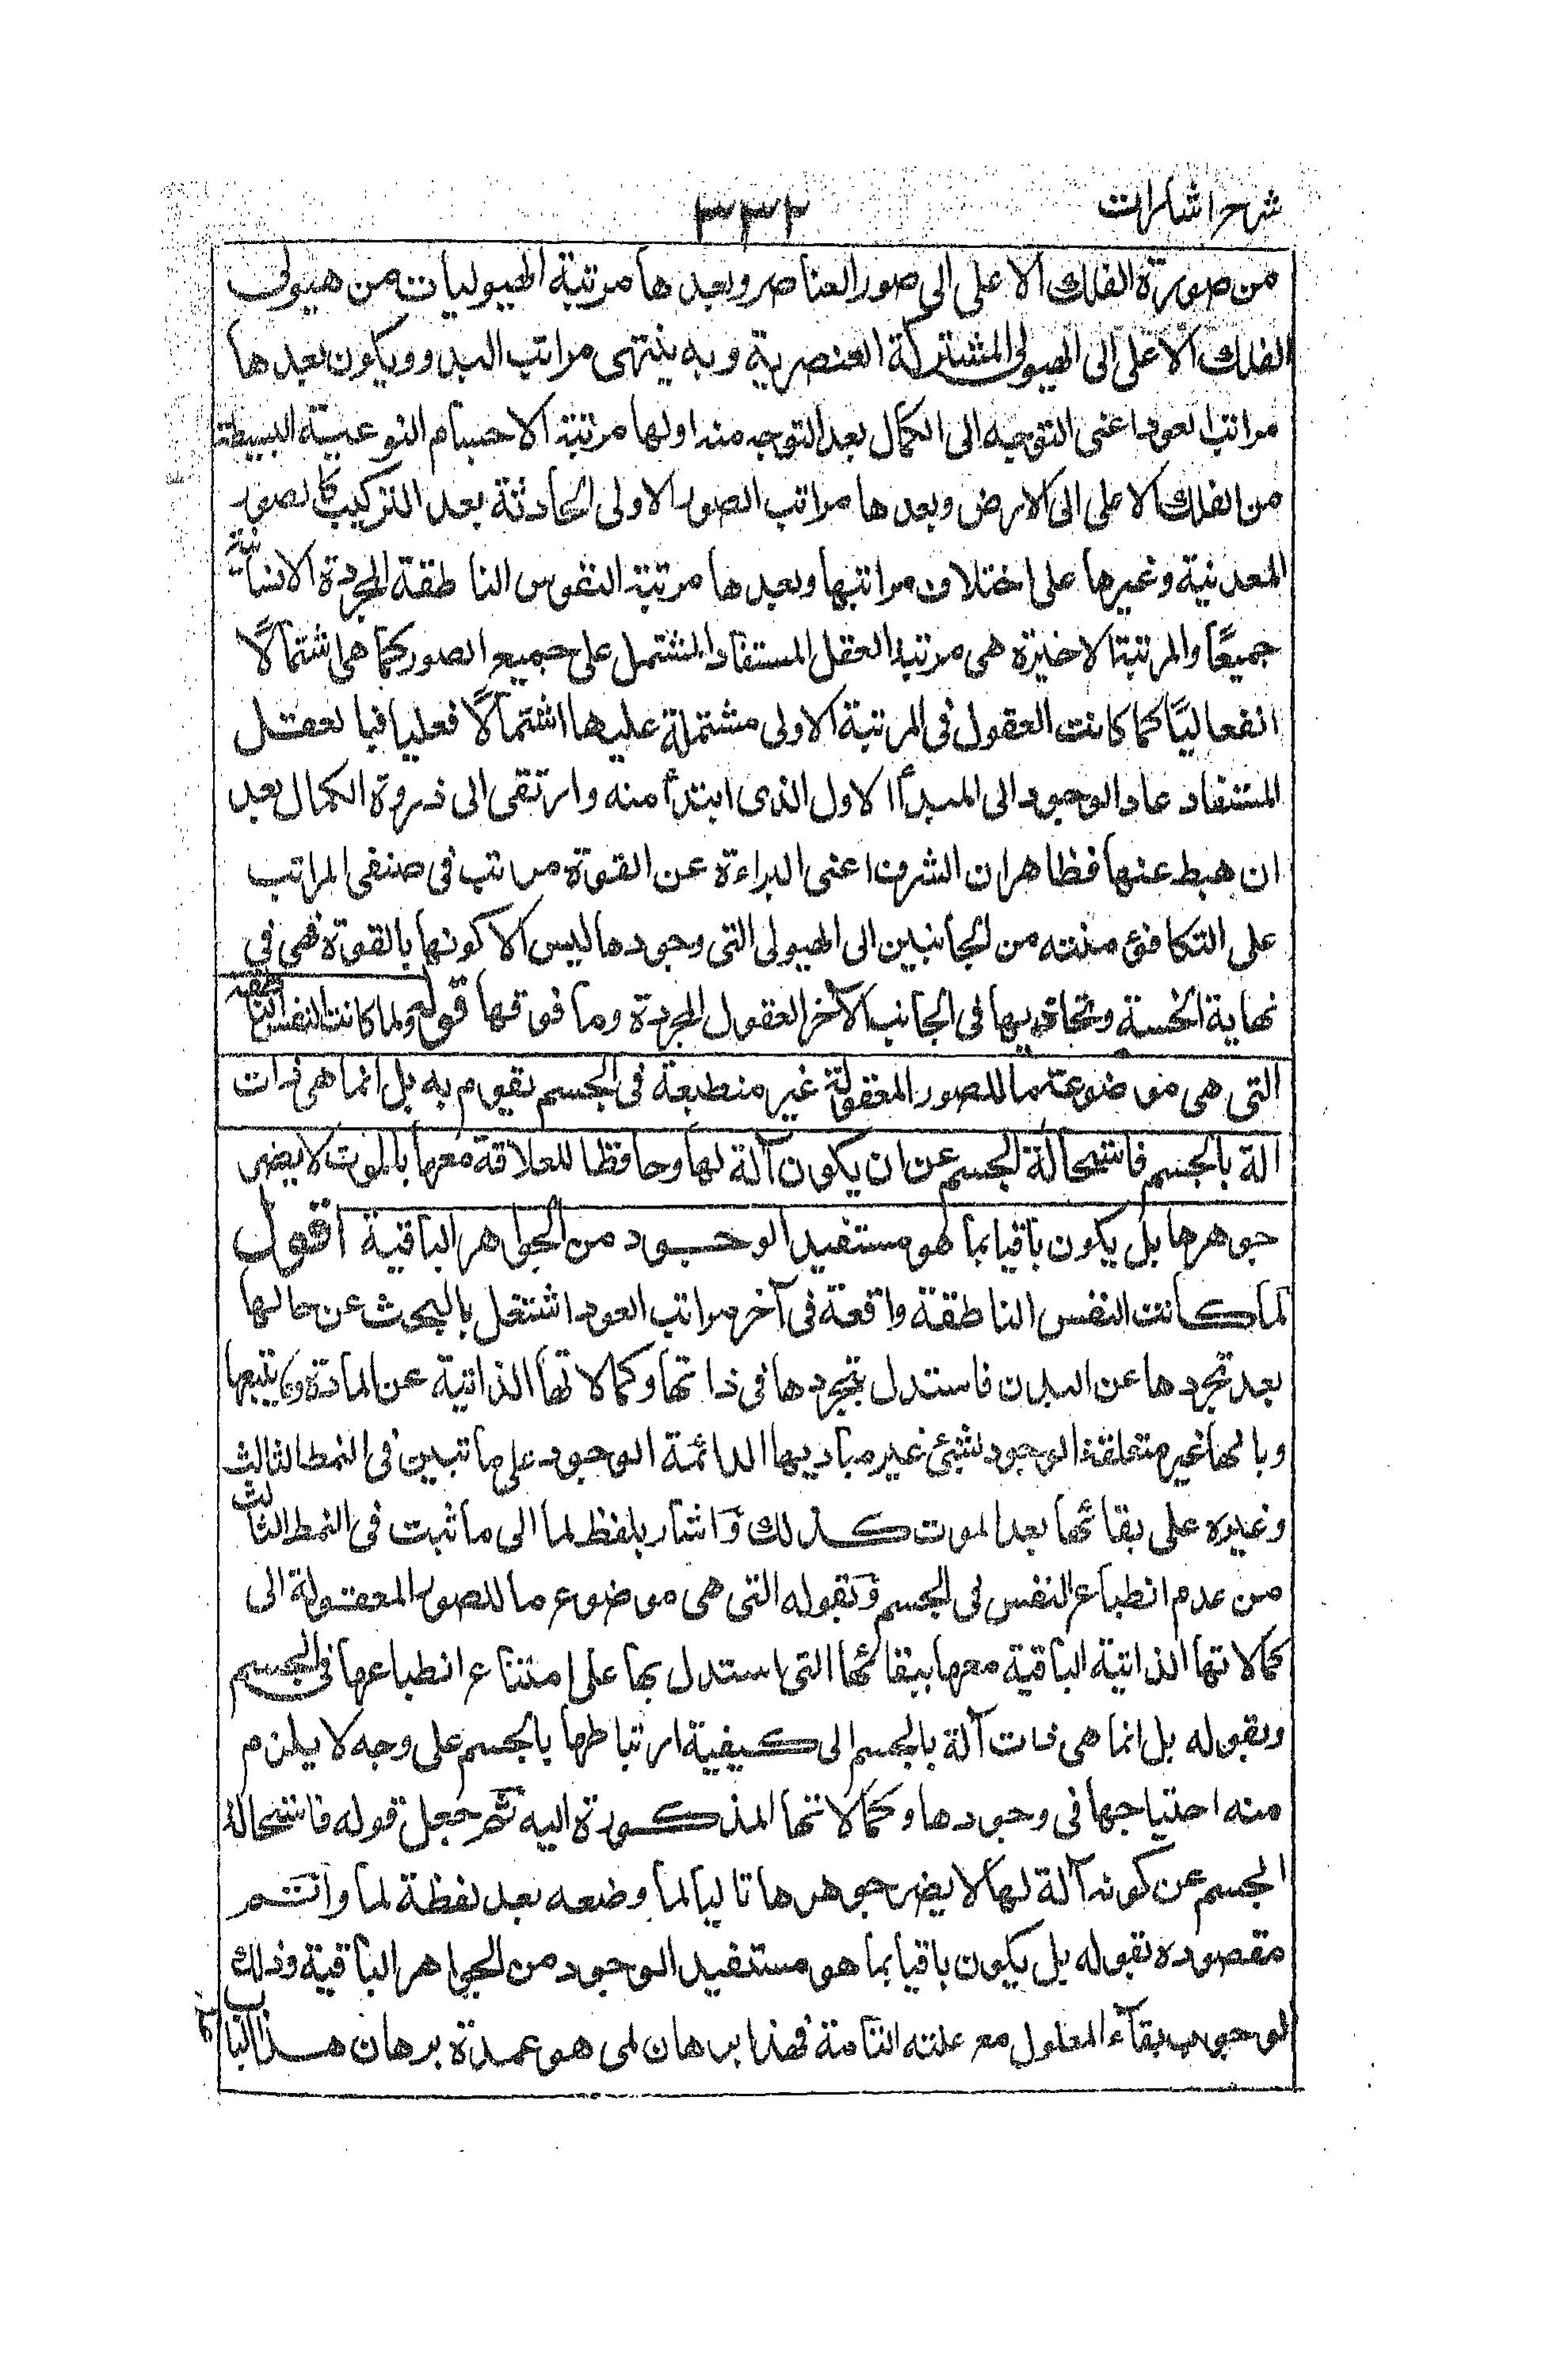 شرح اشارات
٣٣٢
من صورة الفلك الاعلى الى صور العناصر وبعدها مرتبة الهيوليات من هيولى
الفلك الاعلى الى الهيولى المشتركة العنصرية وبه ينتهى مراتب البدو ويكون بعدها
مراتب العود اعنى التوجه الى الكمال بعد التوجه منه اولها مرتبة الاجسام النوعية البسيطة
من الفلك الاعلى الى الارض وبعدها مراتب الصور الاولى الحادثة بعد التركيب كالصور
المعدنية وغيرها على اختلاف مراتبها وبعدها مرتبة النفوس الناطقة المجردة الانسانية
جميعًا والمرتبة الاخيرة هى مرتبة العقل المستفاد المشتمل على جميع الصور كما هى اشتمالًا
انفعاليًا كما كانت العقول فى المرتبة الاولى مشتملة عليها اشتمالًا فعليا فبالعقل
المستفاد عاد الوجود الى المبدأ الاول الذى ابتدأ منه وارتقى الى ذروة الكمال بعد
ان هبط عنها فظاهر ان الشرف اعنى البراءة عن القوة مراتب فى صنفى المراتب
على التكافؤ منته من الجانبين الى الهيولى التى وجودها ليس الا كونها بالقوة فهى فى
نهاية الخسة وتحاذيها فى الجانب الآخر العقول المجردة وما فوقها قوله ولما كانت النفس الناطقة
التى هى موضوعة ما للصور المعقولة غير منطبعة فى الجسم يقوم به بل انما هى ذات
الة بالجسم فاستحالة الجسم عن ان يكون آلة لها وحافظا للعلاقة معها بالموت لا يضر
جوهرها بل يكون باقيا بما هو مستفيد الوجود من الجواهر الباقية اقول
لما كانت النفس الناطقة واقعة فى آخر مراتب العود اشتغل بالبحث عن حالها
بعد تجردها عن البدن فاستدل بتجردها فى ذاتها وكمالاتها الذاتية عن المادة وما يتبعها
وبانها غير متعلقة الوجود بشئ غير مباديها الدائمة الوجود على ما تبين فى النمط الثالث
وغيره على بقائها بعد الموت كذلك وَاشار بلفظ لما الى ما ثبت فى النمط الثالث
من عدم انطباع النفس فى الجسم وَبقوله التى هى موضوع ما للصور المعقولة الى
كمالاتها الذاتية الباقية معها ببقائها التى استدل بها على امتناع انطباعها فى الجسم
وبقوله بل انما هى ذات آلة بالجسم الى كيفية ارتباطها بالجسم على وجه لا يلزم
منه احتياجها فى وجودها وكمالاتها المذكورة اليه ثم جعل قوله فاستحالة
الجسم عن كونه آلة لها لا يضر جوهرها تاليا لما وضعه بعد لفظة لما واتم
مقصوده بقوله بل يكون باقيا بما هو مستفيد الوجود من الجواهر الباقية وذلك
لوجوب بقآء المعلول مع علته التامة فهذا برهان لمى هو عمدة برهان هذا الباب